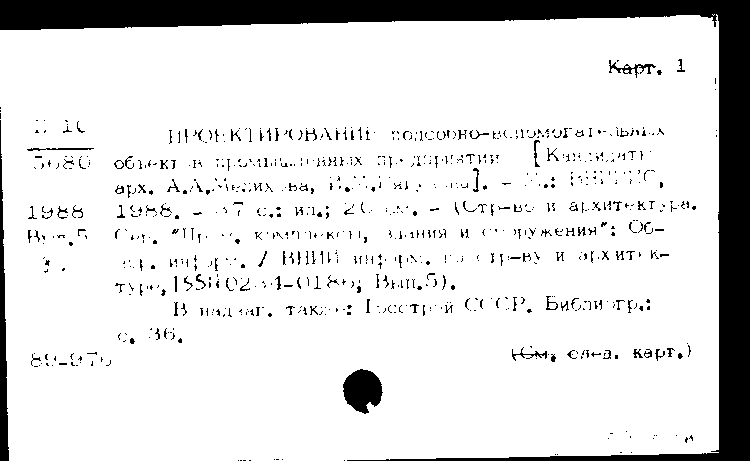 Карт. 1
ПРОЕКТИРОВАНИЕ подсобно-вспомогательных
5680 объектов промышленных предприятий [Кандидаты
арх. А.А.
1988 1988. - 37 с.: ил.; 20 см. - (Стр-во и архитектура.
Вып.5 Сер. "Пром. комплексы, здания и сооружения": Об-
зор. информ. / ВНИИ информ. по стр-ву и архитек-
туре, ISSN 0234-0186; Вып.5).
В надзаг. также: Госстрой СССР. Библиогр.:
с. 36.
89-976 (См. след. карт.)